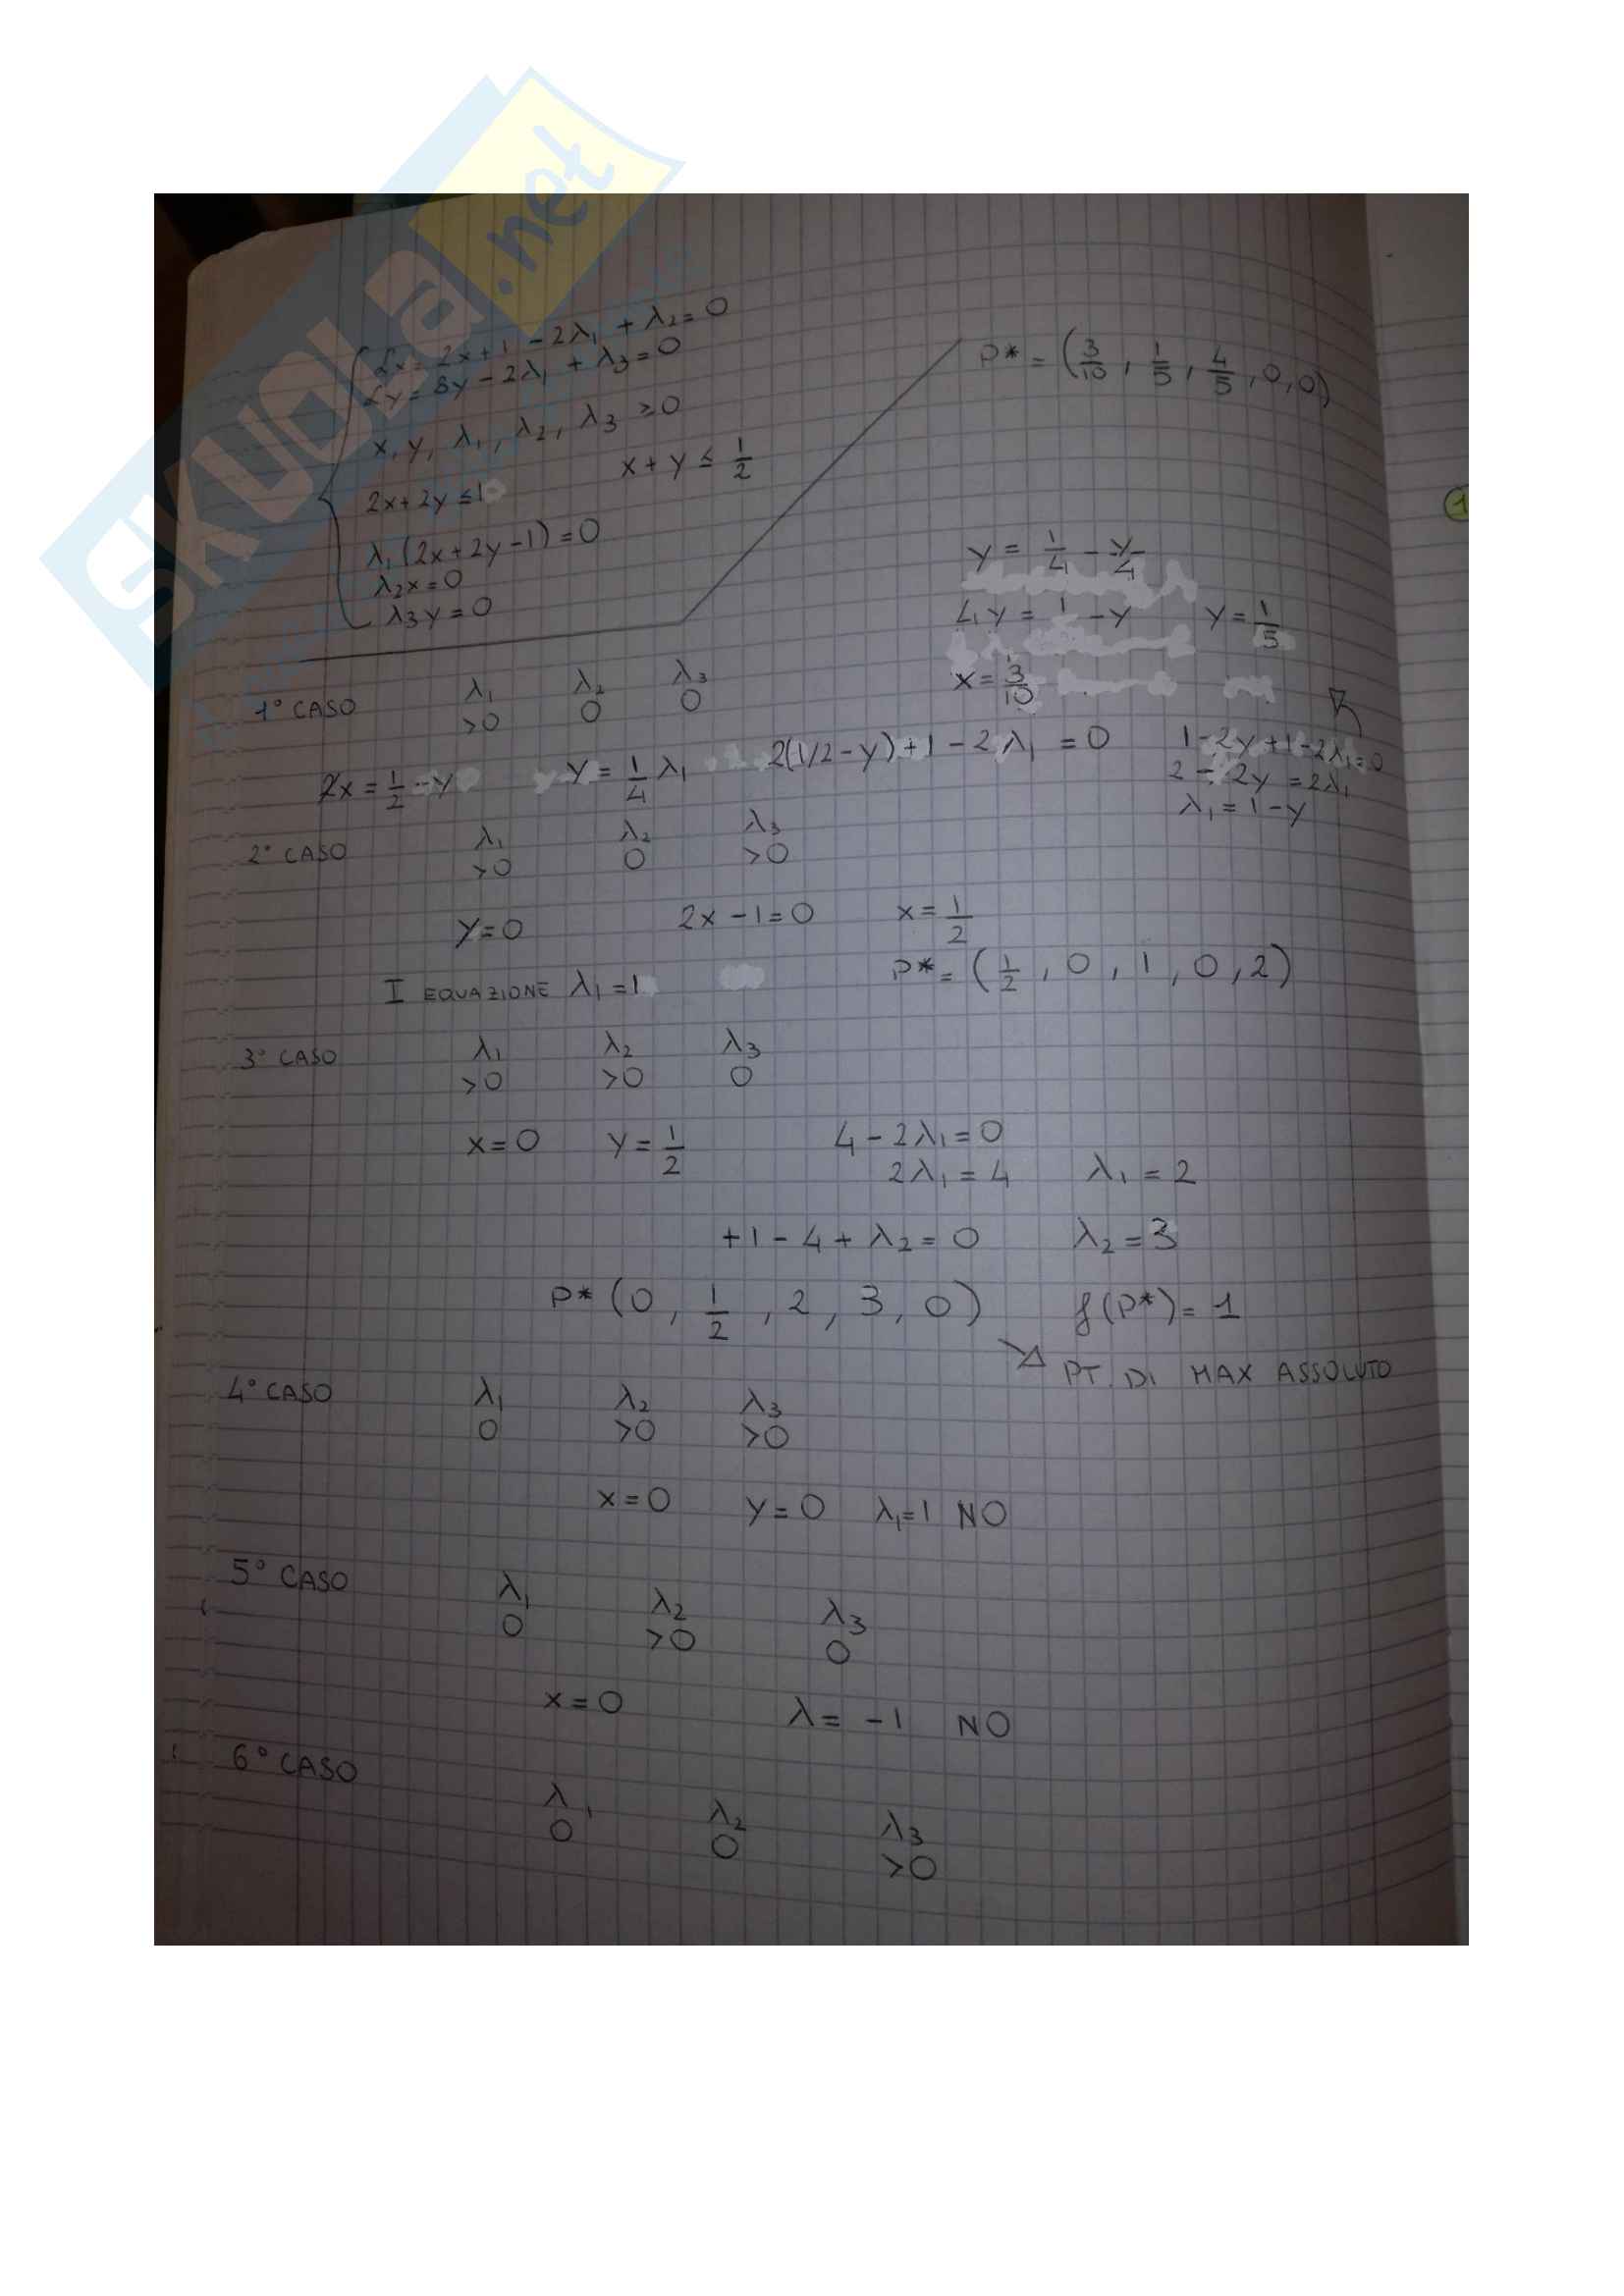 SKUOLA.net
Lx = 2x + 1 - 2λ₁ + λ₂ = 0
Ly = 8y - 2λ₁ + λ₃ = 0
x, y, λ₁, λ₂, λ₃ ≥ 0
2x + 2y ≤ 1 x + y ≤ 1/2
λ₁ (2x + 2y - 1) = 0
λ₂x = 0
λ₃y = 0
P* = (3/10, 1/5, 4/5, 0, 0)
1
y = 1/4 - y/4
4y = 1 - y y = 1/5
x = 3/10
1° CASO λ₁ λ₂ λ₃
>0 0 0
x = 1/2 - y y = 1/4 λ₁ 2(1/2 - y) + 1 - 2λ₁ = 0 1 - 2y + 1 - 2λ₁ = 0
2 - 2y = 2λ₁
λ₁ = 1 - y
2° CASO λ₁ λ₂ λ₃
>0 0 >0
y = 0 2x - 1 = 0 x = 1/2
I EQUAZIONE λ₁ = 1 P* = (1/2, 0, 1, 0, 2)
3° CASO λ₁ λ₂ λ₃
>0 >0 0
x = 0 y = 1/2 4 - 2λ₁ = 0
2λ₁ = 4 λ₁ = 2
+1 - 4 + λ₂ = 0 λ₂ = 3
P* (0, 1/2, 2, 3, 0) f(P*) = 1
PT. DI MAX ASSOLUTO
4° CASO λ₁ λ₂ λ₃
0 >0 >0
x = 0 y = 0 λ₁ = 1 NO
5° CASO λ₁ λ₂ λ₃
0 >0 0
x = 0 λ = -1 NO
6° CASO
λ₁ λ₂ λ₃
0 0 >0